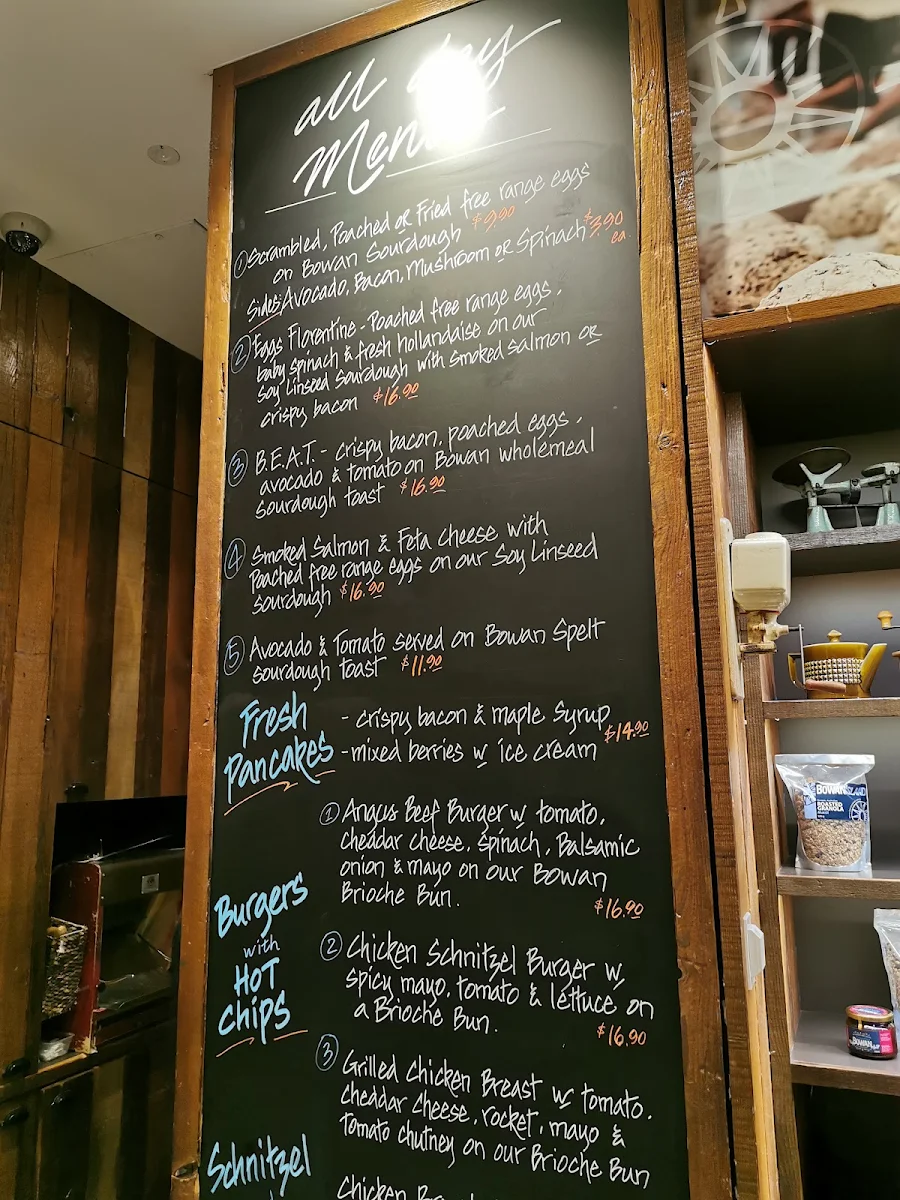 all day
Menu
① Scrambled, Poached or Fried free range eggs
on Bowan Sourdough $9.90
Sides: Avocado, Bacon, Mushroom or Spinach $3.90
ea.
② Eggs Florentine - Poached free range eggs,
baby spinach & fresh hollandaise on our
Soy Linseed Sourdough with smoked salmon or
crispy bacon $16.90
③ B.E.A.T. - crispy bacon, poached eggs,
avocado & tomato on Bowan wholemeal
sourdough toast $16.90
④ Smoked Salmon & Feta cheese with
Poached free range eggs on our Soy Linseed
sourdough $16.90
⑤ Avocado & Tomato served on Bowan Spelt
sourdough toast $11.90
Fresh
Pancakes
- crispy bacon & maple Syrup
- mixed berries w ice cream
$14.90
Burgers
with
HOT
chips
① Angus Beef Burger w tomato,
cheddar cheese, spinach, Balsamic
onion & mayo on our Bowan
Brioche Bun.
$16.90
② Chicken Schnitzel Burger w
spicy mayo, tomato & lettuce on
a Brioche Bun.
$16.90
③ Grilled Chicken Breast w tomato,
cheddar cheese, rocket, mayo &
tomato chutney on our Brioche Bun
Schnitzel
Chicken
BOWAN ISLAND
ROASTED
GRANOLA
BOWAN